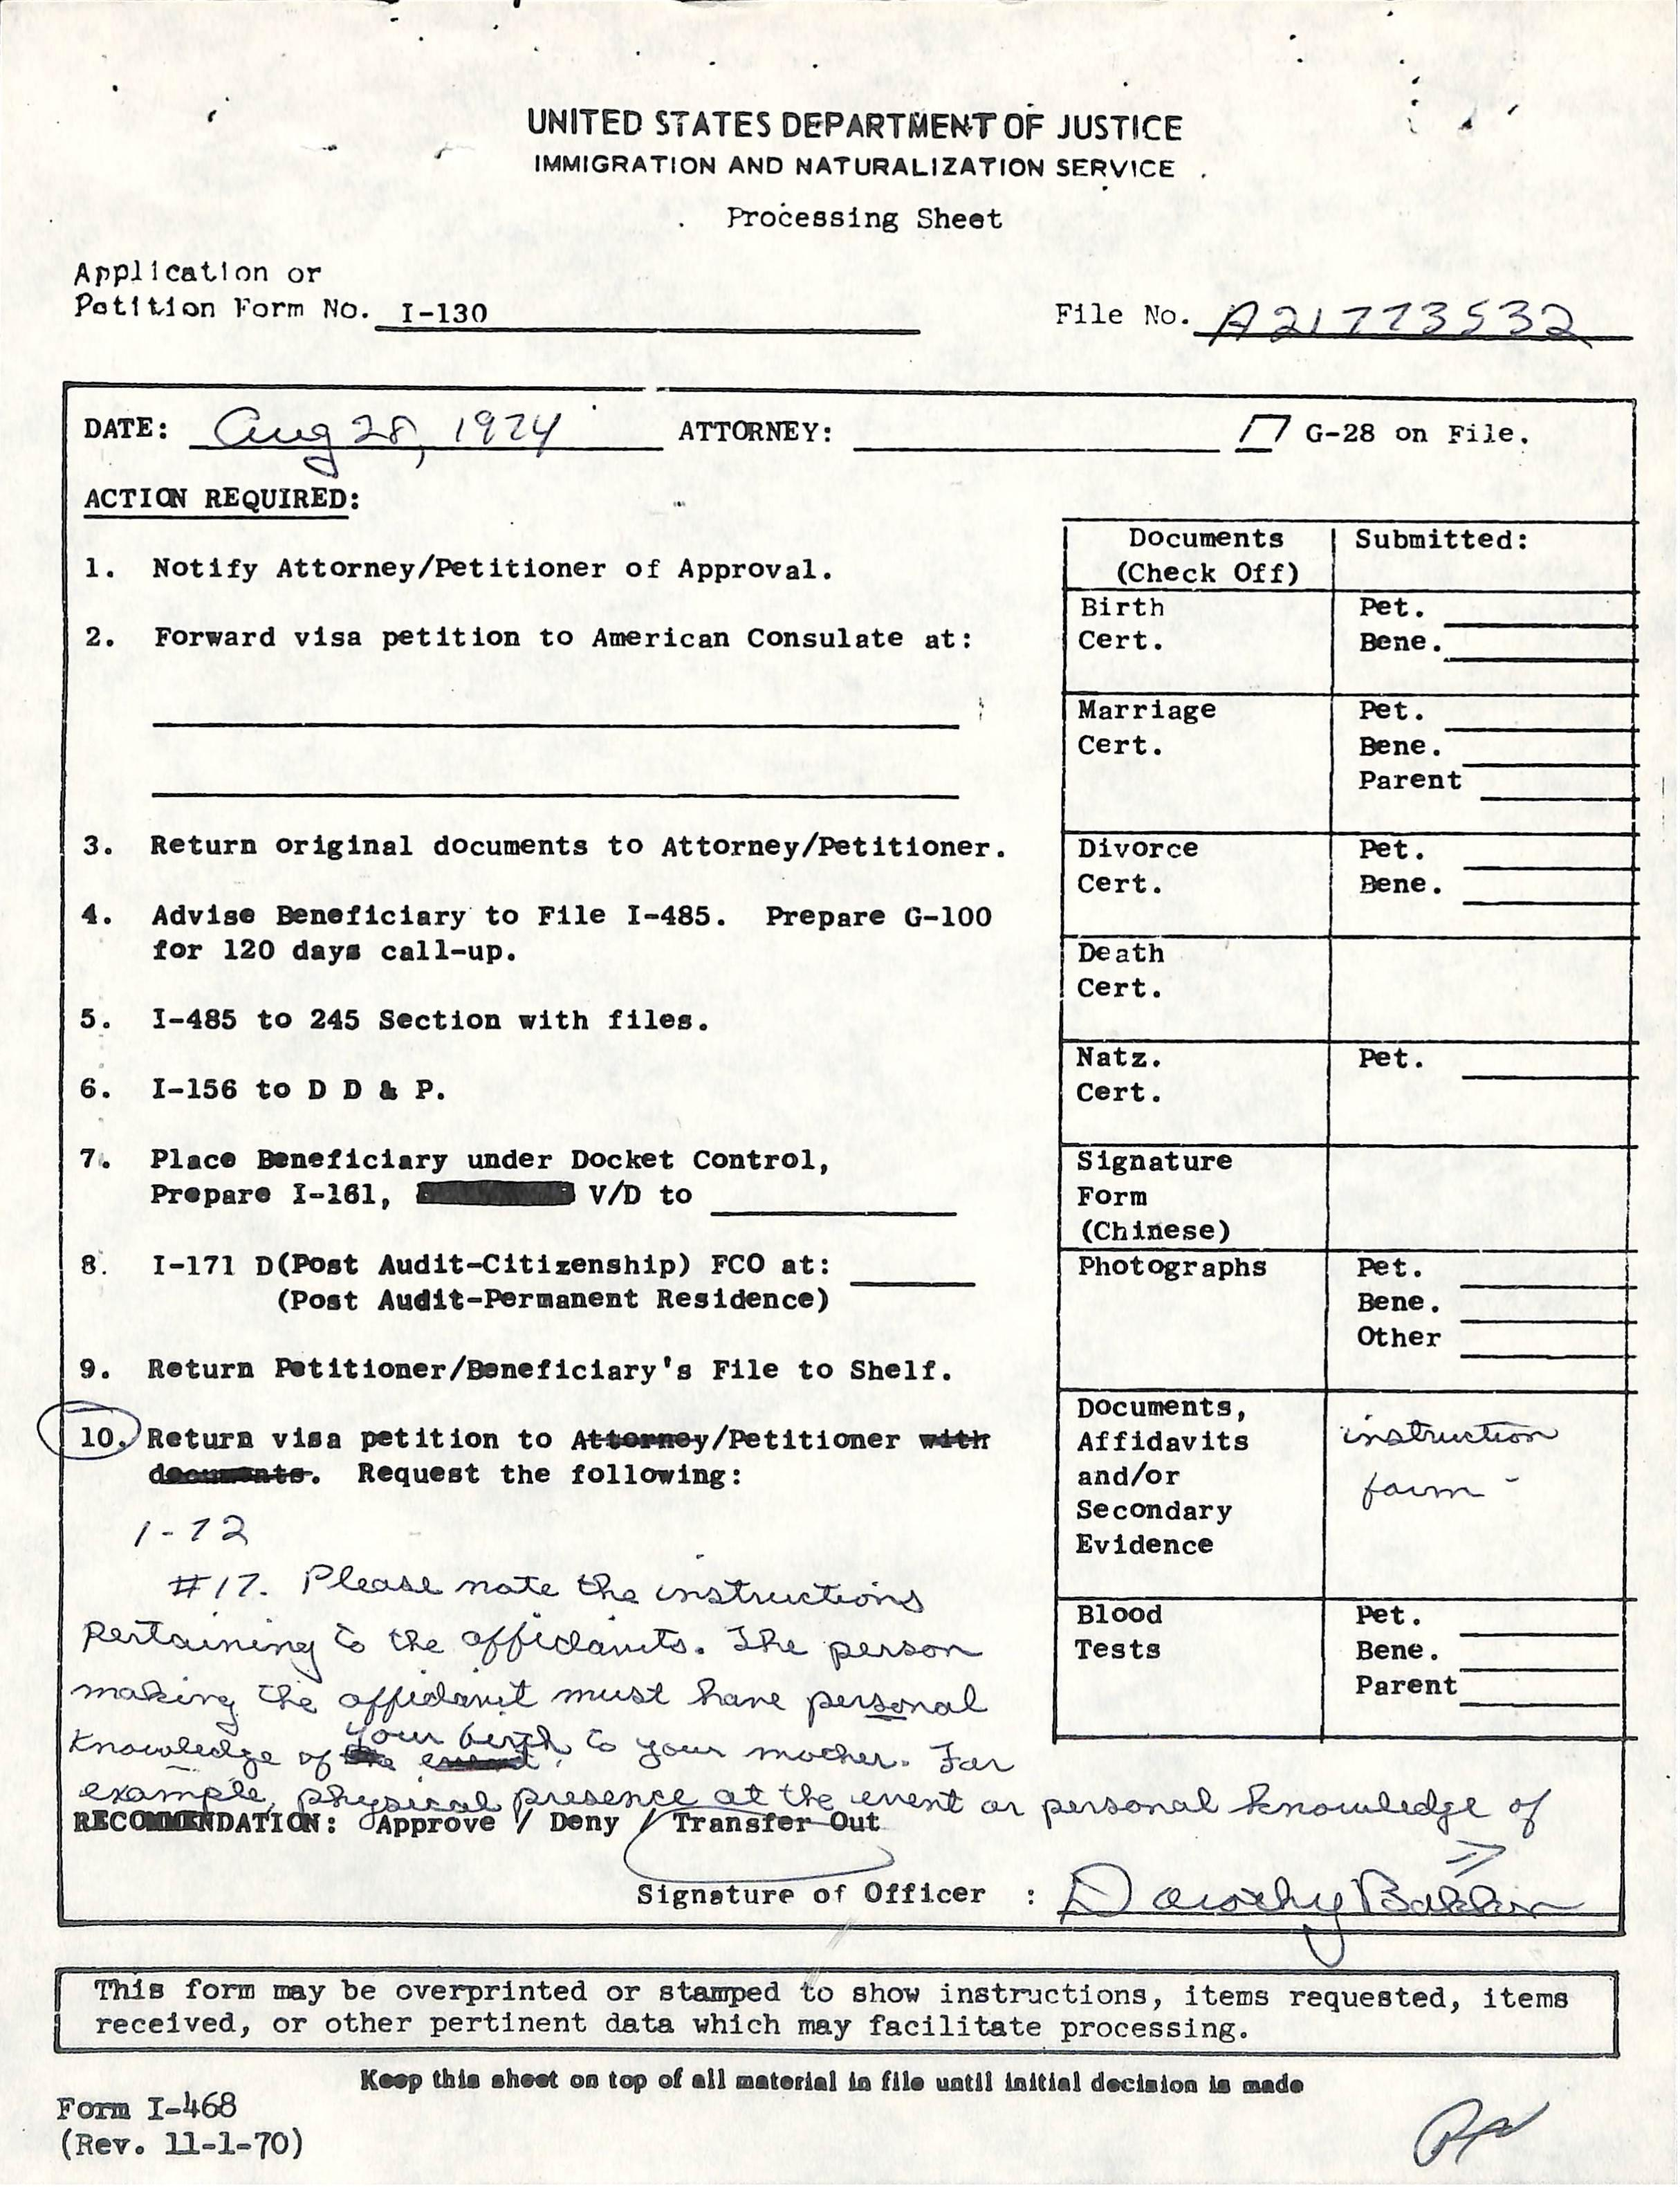 UNITED STATES DEPARTMENT OF JUSTICE
IMMIGRATION AND NATURALIZATION SERVICE
Processing Sheet
Application or
Petition Form No. I-130
File No. A21773532
DATE: Aug 28, 1974 ATTORNEY: G-28 on File.
ACTION REQUIRED:
1. Notify Attorney/Petitioner of Approval.
2. Forward visa petition to American Consulate at:
3. Return original documents to Attorney/Petitioner.
4. Advise Beneficiary to File I-485. Prepare G-100
for 120 days call-up.
5. I-485 to 245 Section with files.
6. I-156 to D D & P.
7. Place Beneficiary under Docket Control,
Prepare I-161, V/D to
8. I-171 D(Post Audit-Citizenship) FCO at:
(Post Audit-Permanent Residence)
9. Return Petitioner/Beneficiary's File to Shelf.
10. Return visa petition to Attorney/Petitioner with
documents. Request the following:
1-72
#17. Please note the instructions
pertaining to the affidavits. The person
making the affidavit must have personal
knowledge of your birth to your mother. For
example, physical presence at the event or personal knowledge of
Documents
(Check Off)
Submitted:
Birth
Cert.
Pet.
Bene.
Marriage
Cert.
Pet.
Bene.
Parent
Divorce
Cert.
Pet.
Bene.
Death
Cert.
Natz.
Cert.
Pet.
Signature
Form
(Chinese)
Photographs
Pet.
Bene.
Other
Documents,
Affidavits
and/or
Secondary
Evidence
instruction
form -
Blood
Tests
Pet.
Bene.
Parent
RECOMMENDATION: Approve / Deny / Transfer Out
Signature of Officer : Dorothy
This form may be overprinted or stamped to show instructions, items requested, items
received, or other pertinent data which may facilitate processing.
Keep this sheet on top of all material in file until initial decision is made
Form I-468
(Rev. 11-1-70)